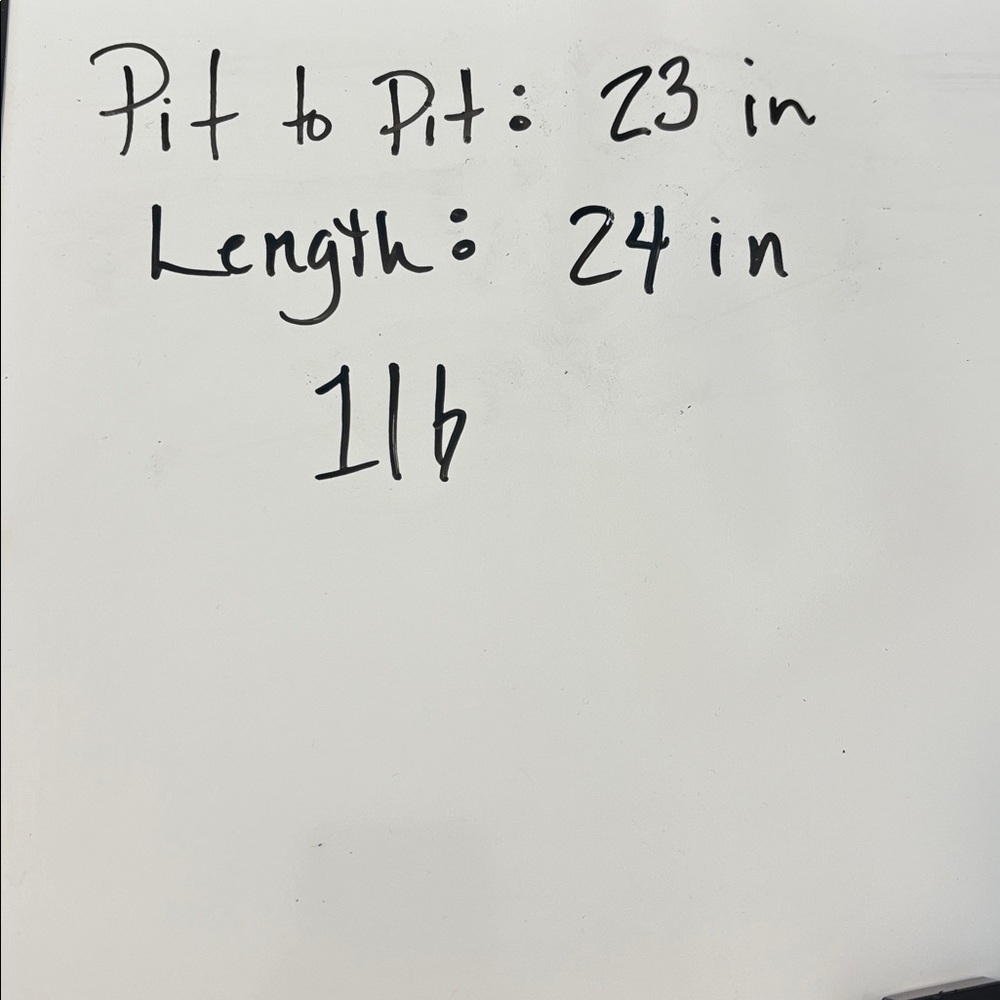 Pit to Pit: 23 in
Length: 24 in
1lb